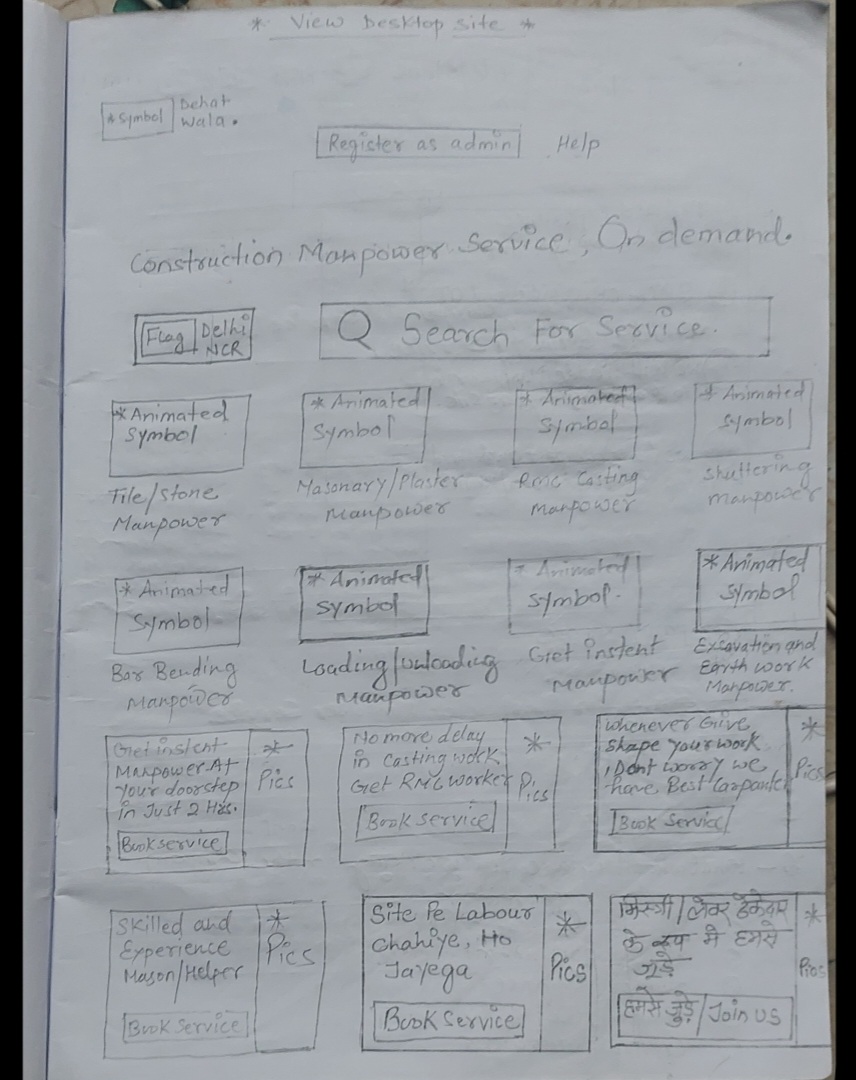 * View Desktop site *
* Symbol
Dehat
Wala.
Register as admin
Help
Construction Manpower Service, On demand.
Flag
Delhi
NCR
Q Search For Service.
* Animated
Symbol
* Animated
Symbol
* Animated
Symbol
* Animated
Symbol
Tile/stone
Manpower
Masonary/Plaster
Manpower
RMC Casting
manpower
Shuttering
manpower
* Animated
Symbol
* Animated
Symbol
* Animated
Symbol
* Animated
Symbol
Bar Bending
Manpower
Loading/Unloading
Manpower
Get instent
Manpower
Excavation and
Earth work
Manpower.
Get instent
Manpower At
Your doorstep
in Just 2 Hrs.
Book service
*
Pics
No more delay
in Casting work
Get RMC worker
Book Service
*
Pics
Whenever Give
Shape Your work
, Dont worry we
have Best Carpante
Book Service
*
Pics
Skilled and
Experience
Mason/Helper
Book Service
*
Pics
Site Pe Labour
Chahiye, Ho
Jayega
Book Service
*
Pics
मिस्त्री/लेबर ठेकेदार
के रूप मे हमसे
जुड़े
हमसे जुड़े/Join US
*
Pics